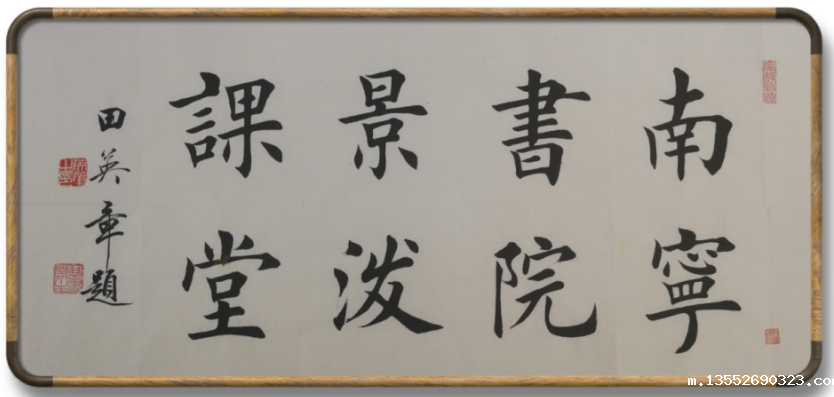 南寧
書院
景泼
課堂
田英章題
m.13552690323.com